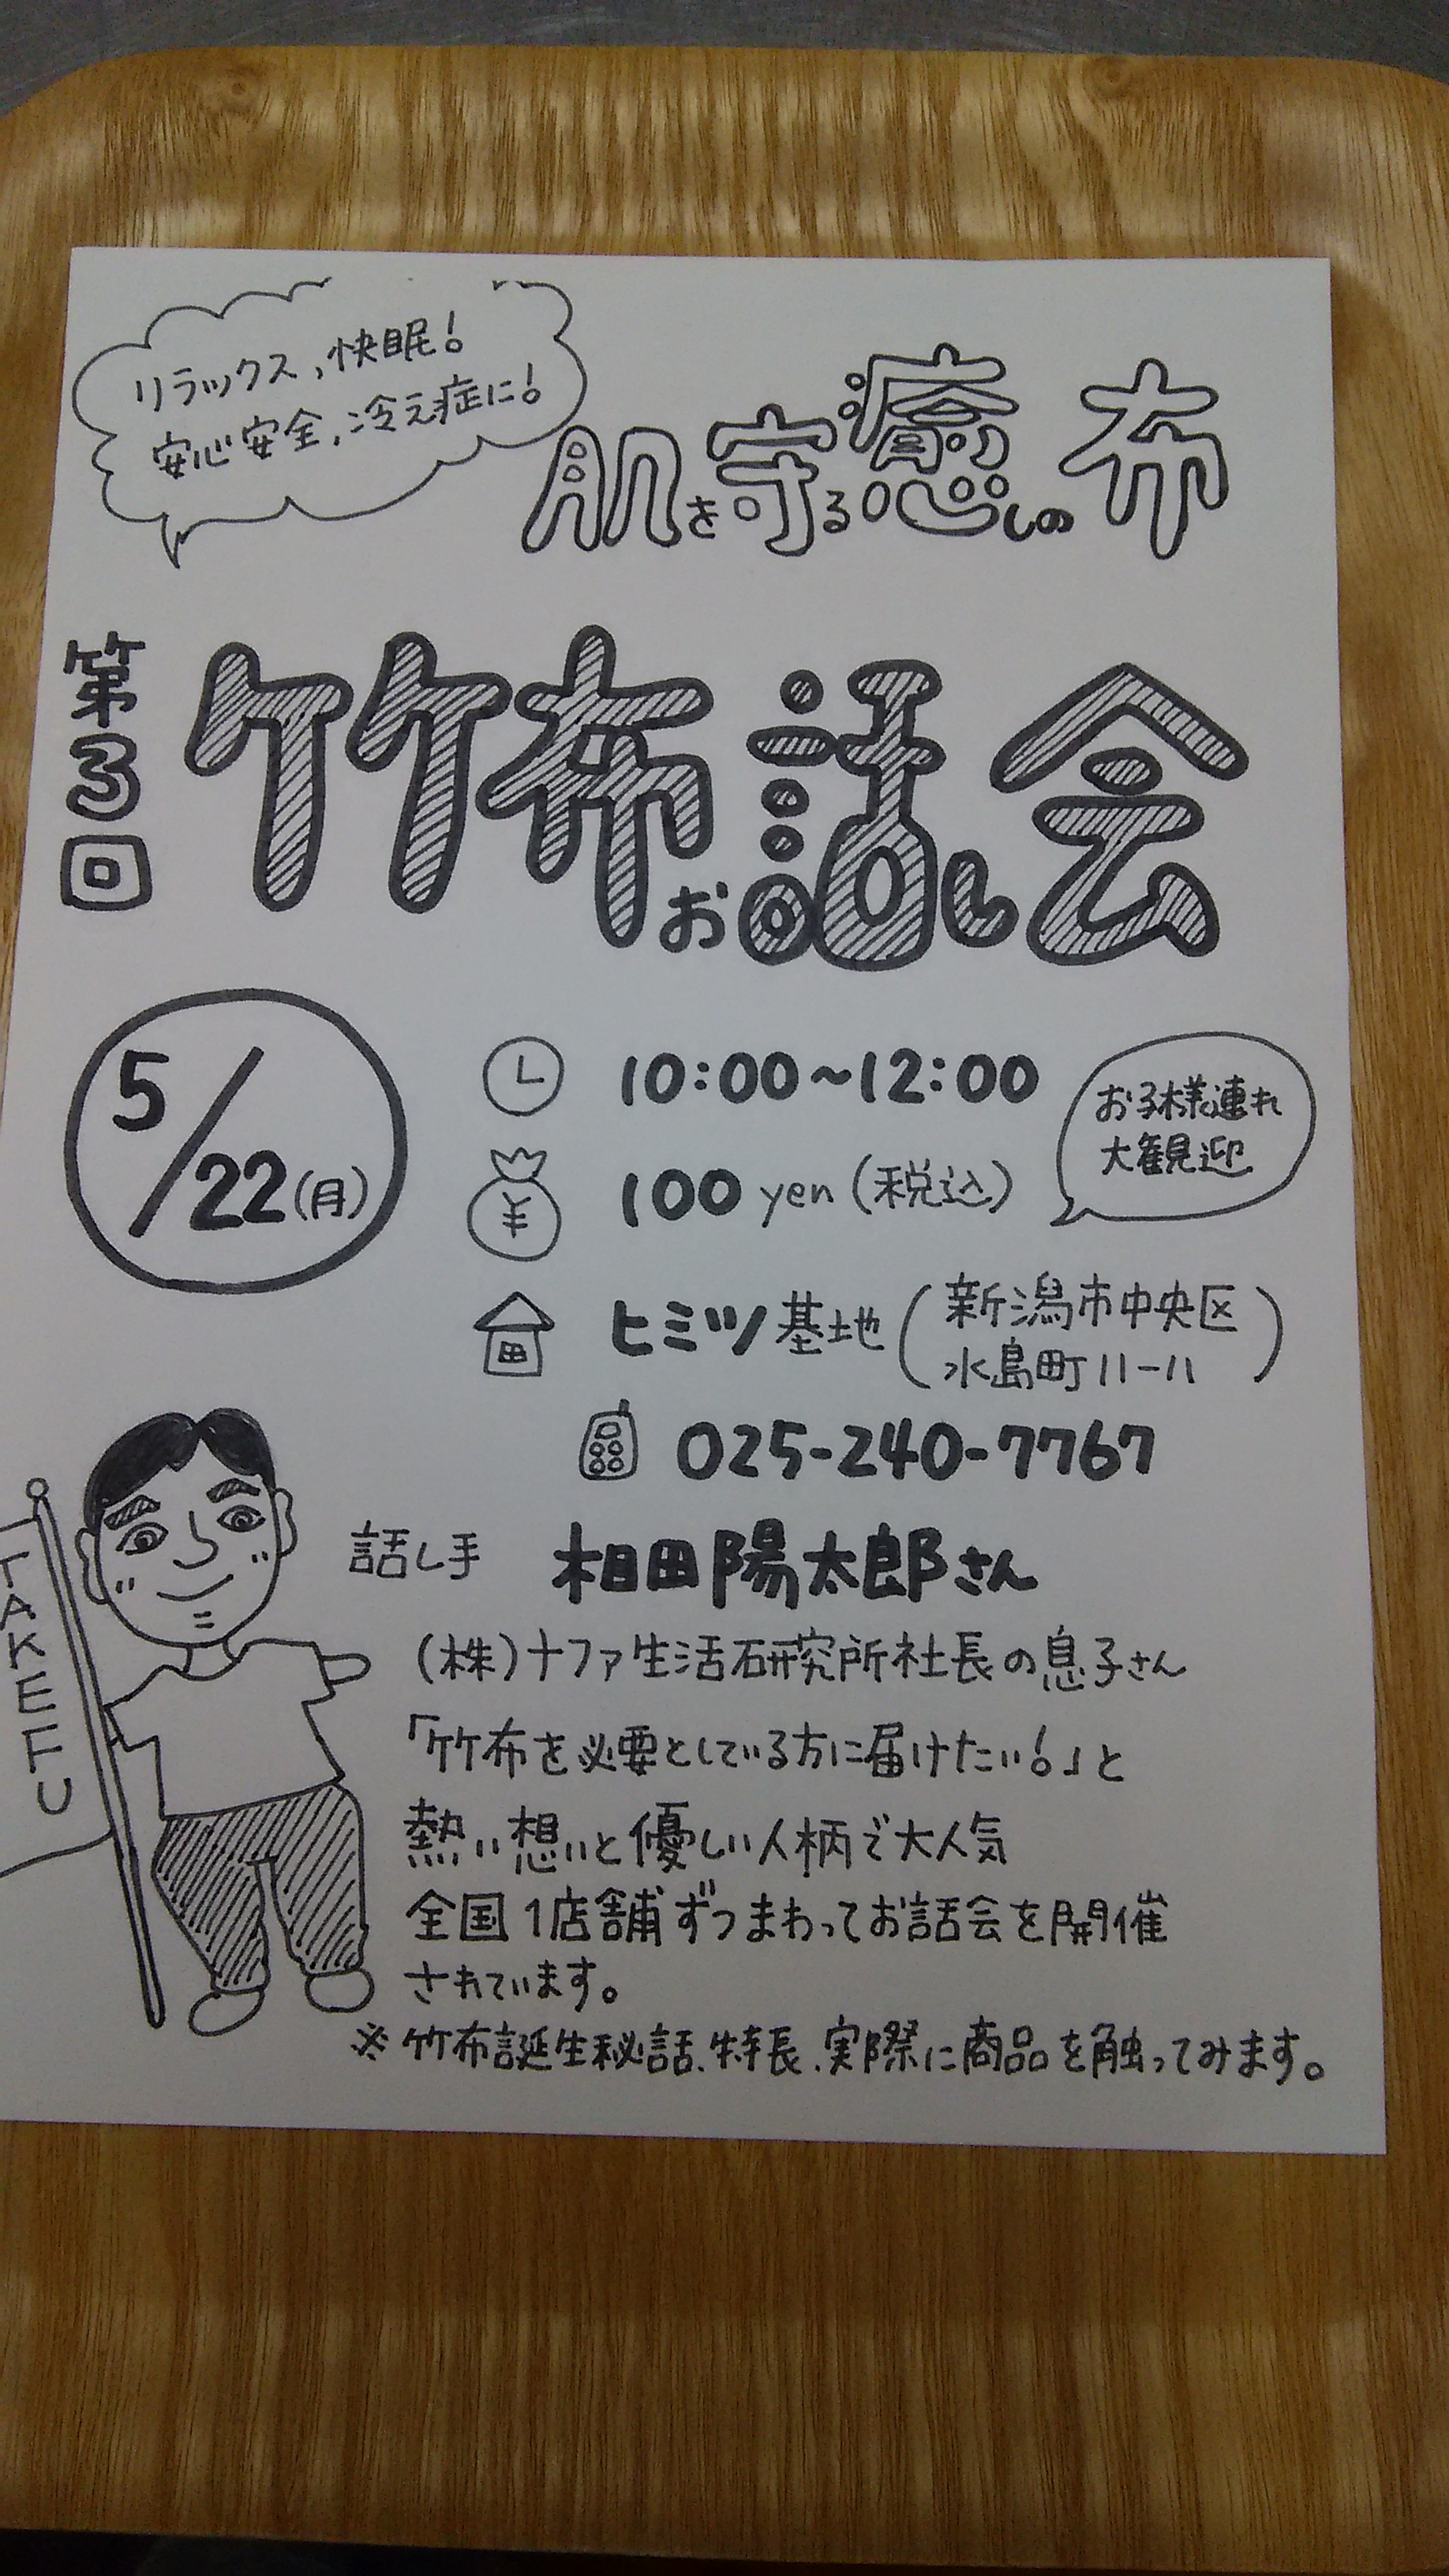 リラックス、快眠!
安心安全、冷え症に!
肌を守る癒しの布
第3回
竹布お話し会
5/22(月)
10:00~12:00
100 yen (税込)
お子様連れ
大観迎
ヒミツ基地(新潟市中央区
水島町11-11)
025-240-7767
TAKEFU
話し手 相田陽太郎さん
(株)ナファ生活研究所社長の息子さん
「竹布を必要としている方に届けたい!」と
熱い想いと優しい人柄で大人気
全国1店舗ずつまわってお話会を開催
されています。
※竹布誕生秘話、特長、実際に商品を触ってみます。